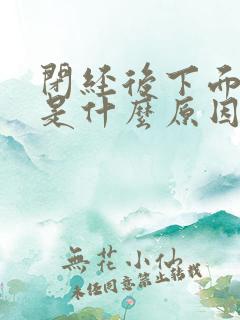 閉經後下而
是什麼原因
無花小仙
未经同意禁止转载